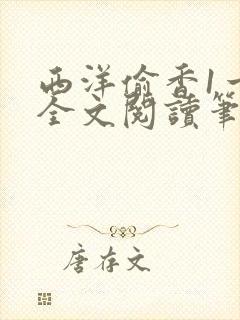 西洋偷香1一
全文閱讀筆
唐存文